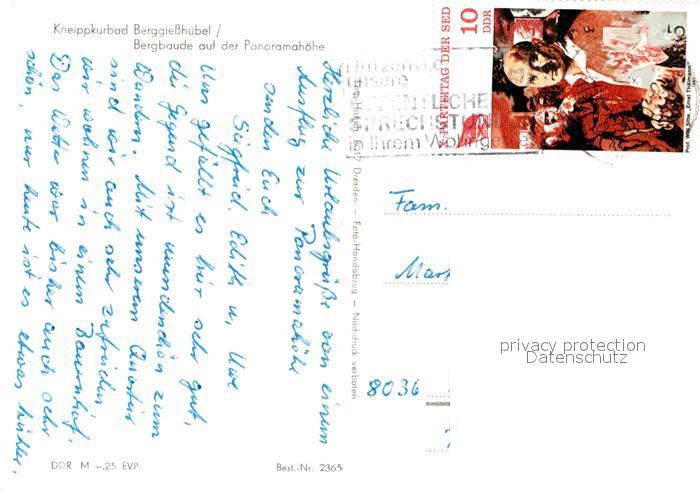 Kneippkurbad Berggießhübel /
Bergbaude auf der Panoramahöhe
Herzliche Urlaubsgrüße von einem
Ausflug zur Panoramahöhe
senden Euch
Siegfried, Edith u. Uwe
Uns gefällt es hier sehr gut,
die Gegend ist wunderschön zum
Wandern. Mit unserem Quartier
sind wir auch sehr zufrieden,
wir wohnen in einem Bauernhof.
Das Wetter war bisher auch sehr
schön, nur heute ist es etwas kühler.
DDR M –,25 EVP
Best.-Nr. 2365
8017 Dresden – Foto-Handabzug – Nachdruck verboten
PARTEITAG DER SED
10
DDR
5
Ernst Thälmann
unsere
SPRECHSTUNDE
in Ihrem
Fam.
8036
privacy protection
Datenschutz